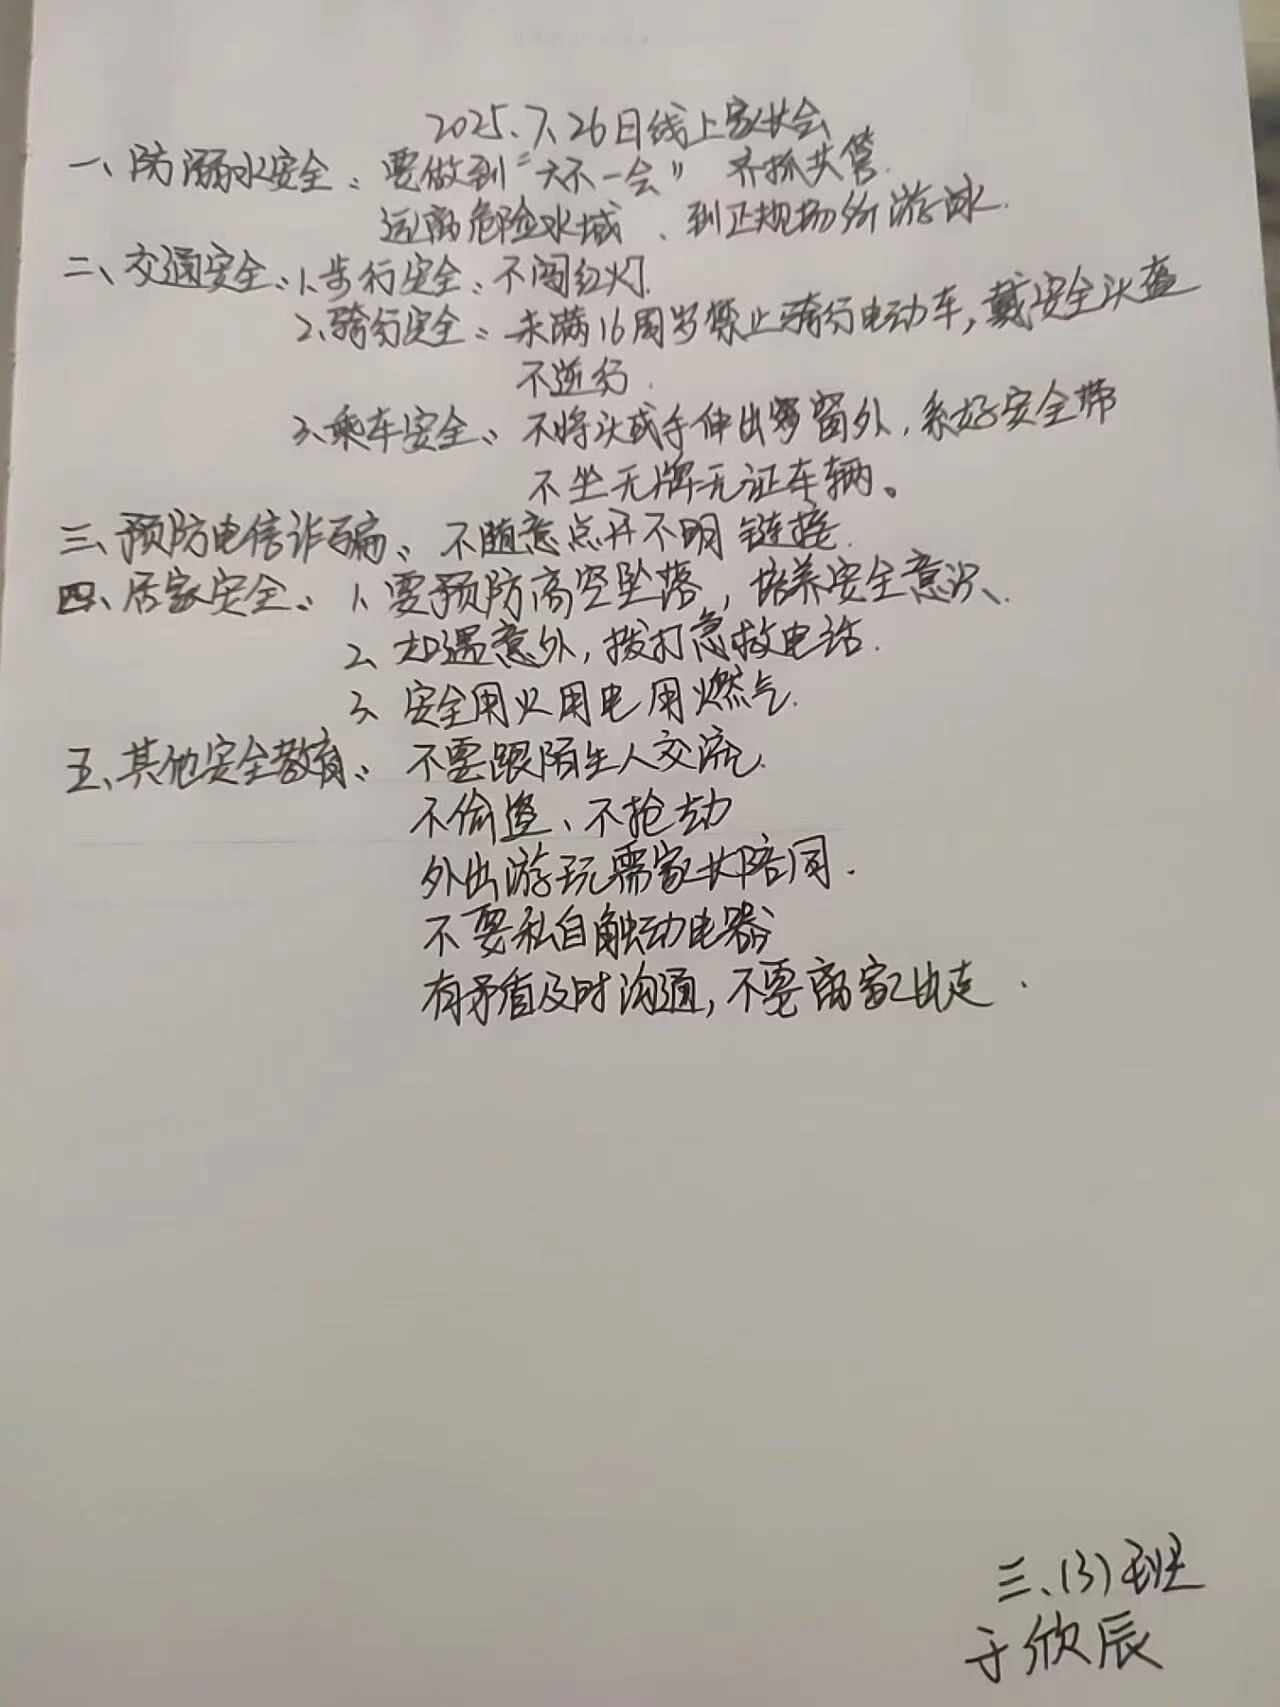 2025.7.26日线上家长会
一、防溺水安全：要做到“六不一会” 齐抓共管.
远离危险水域、到正规场所游泳.
二、交通安全：1、步行安全：不闯红灯.
2、骑行安全：未满16周岁禁止骑行电动车，戴安全头盔
不逆行.
3、乘车安全：不将头或手伸出窗外，系好安全带
不坐无牌无证车辆。
三、预防电信诈骗：不随意点开不明链接.
四、居家安全：1、要预防高空坠落，培养安全意识.
2、如遇意外，拨打急救电话.
3、安全用火用电用燃气.
五、其他安全教育：不要跟陌生人交流.
不偷盗、不抢劫
外出游玩需家长陪同.
不要私自触动电器
有矛盾及时沟通，不要离家出走.
三、(3)班
于欣辰